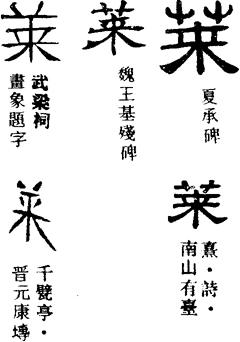 萊
夏承碑
萊
魏王基殘碑
萊
武梁祠
畫象題字
萊
熹・詩・
南山有臺
萊
千甓亭・
晉元康塼